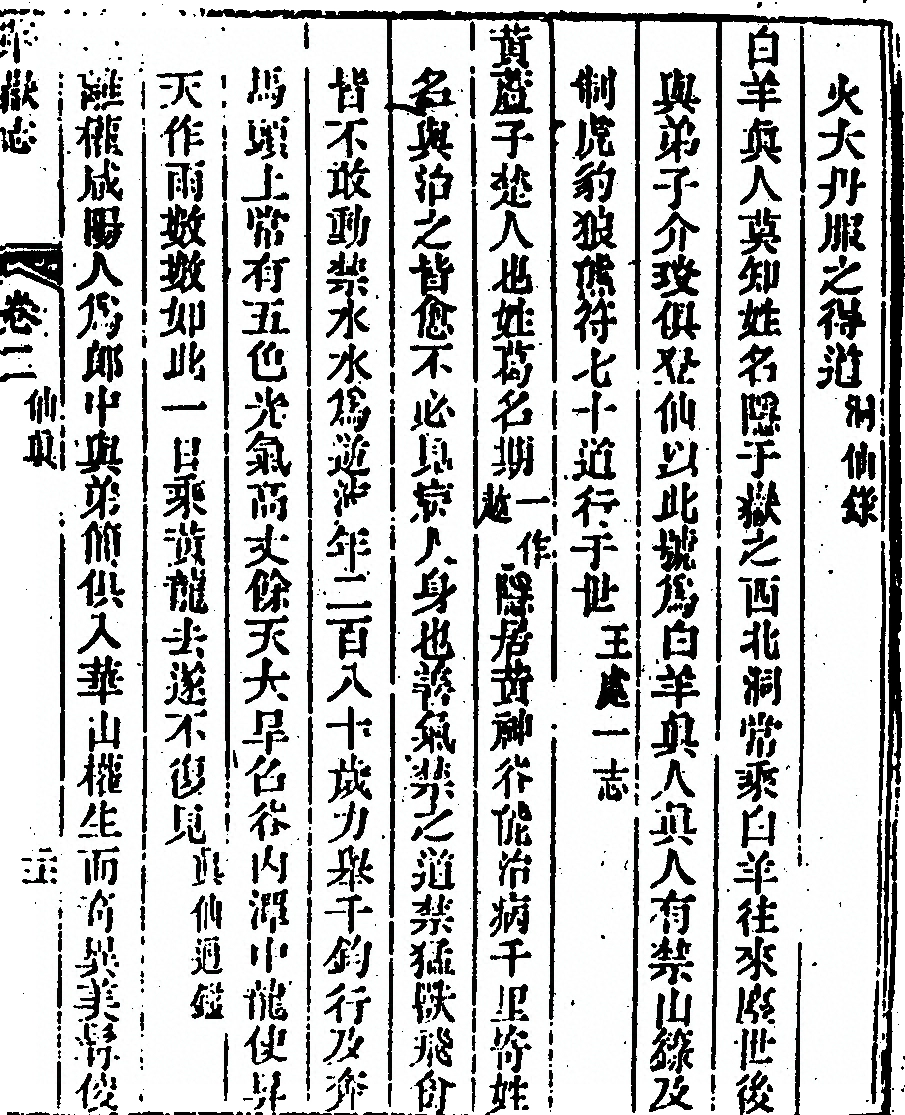 火大丹服之得道洞仙錄
白羊眞人莫知姓名隱于嶽之西北洞常乘白羊往來厯世後
與弟子介琰俱登仙以此號爲白羊眞人眞人有禁山錄及
制虎豹狼熊符七十道行于世王處一志
黃蘆子楚人也姓葛名期一作越隱居黃神谷能治病千里寄姓
名與治之皆愈不必見病人身也善氣禁之道禁猛獸飛禽
皆不敢動禁水水爲逆流年二百八十歲力舉千鈞行及奔
馬頭上常有五色光氣高丈餘天大旱召谷內潭中龍使昇
天作雨數數如此一日乘黃龍去遂不復見眞仙通鑑
離權咸陽人爲郎中與弟簡俱入華山權生而奇異美髯俊
嶽志 卷二 仙眞